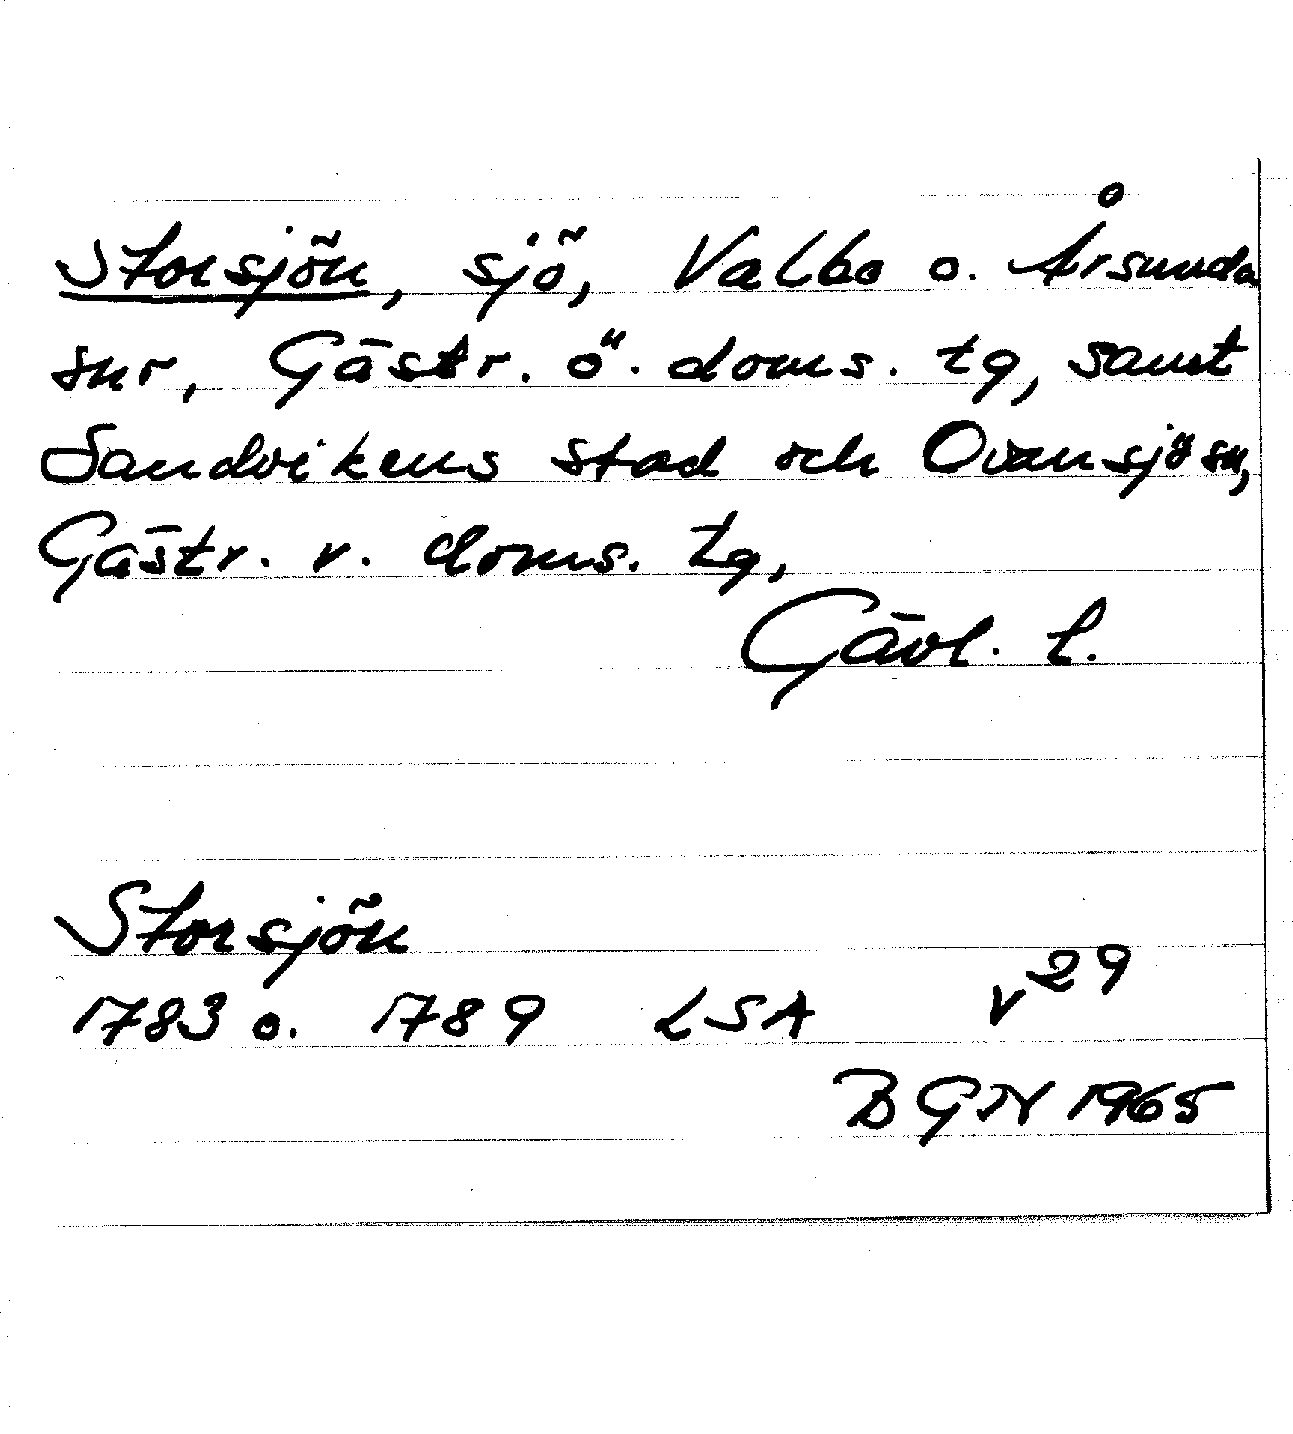 Storsjön, sjö, Valbo o. Årsunda
snr, Gästr. ö. doms. tg, samt
Sandvikens stad och Ovansjö sn,
Gästr. v. doms. tg,
Gävl. l.
Storsjön
1783 o. 1789 LSA V29
BGN 1965